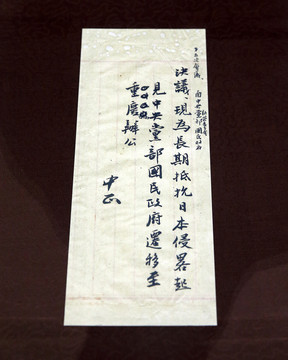 決議、現為長期抵抗日本侵畧起
見中央黨部國民政府遷移至
重慶辦公
中正